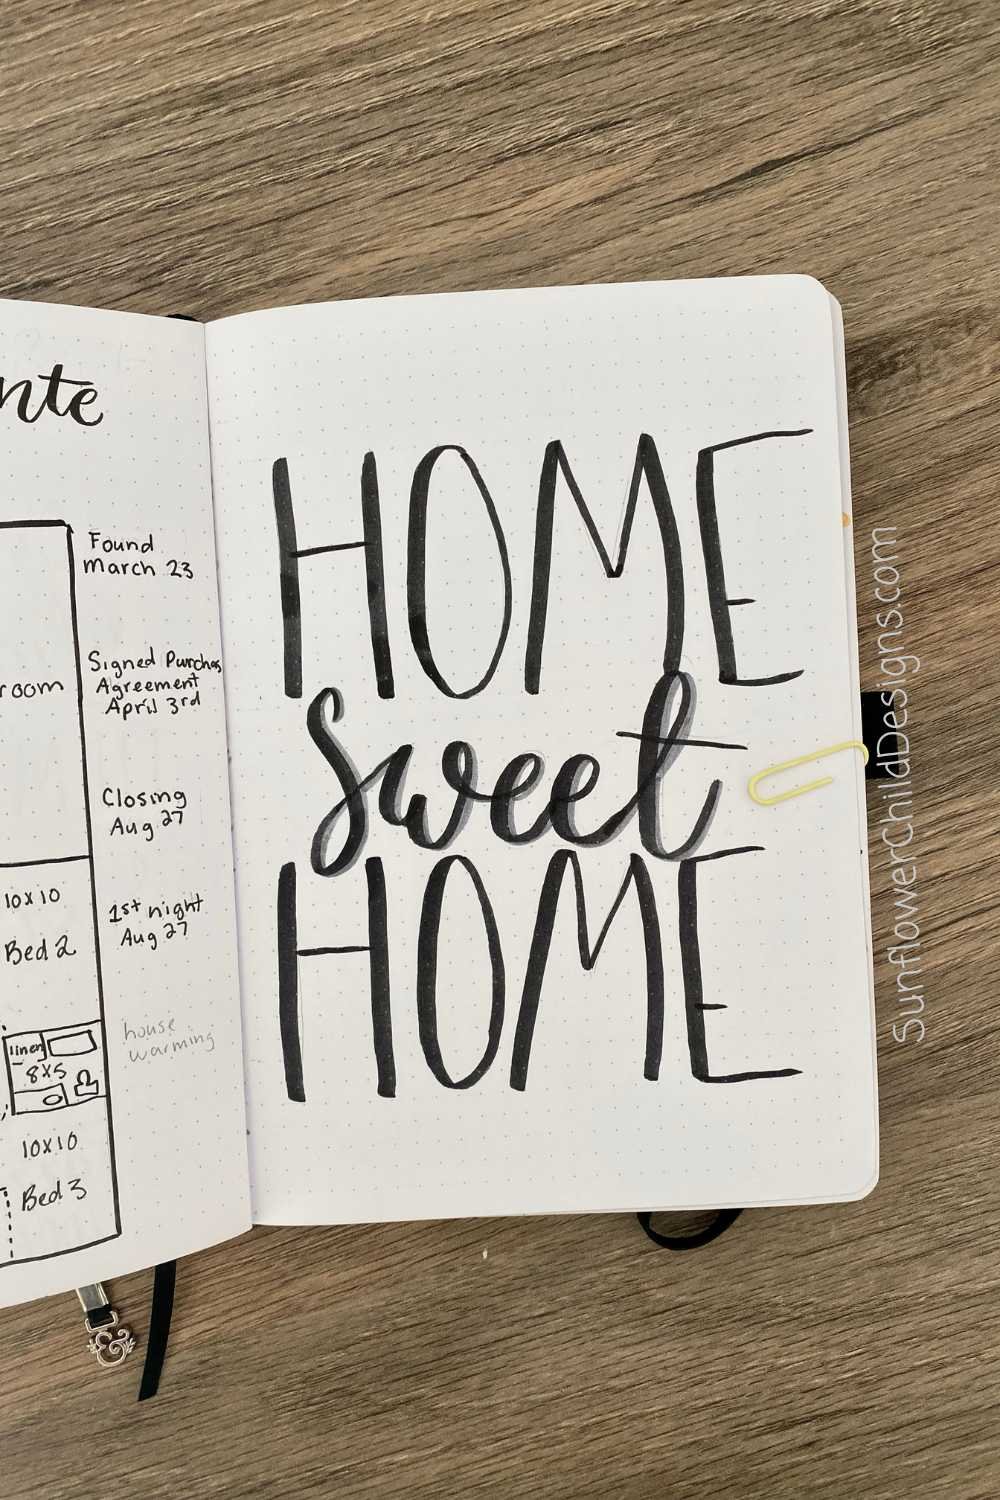 nte
Found
March 23
Signed Purchas
Agreement
April 3rd
Closing
Aug 27
1st night
Aug 27
house
warming
room
10x10
Bed 2
linen
8x5
10x10
Bed 3
HOME
sweet
HOME
SunflowerChildDesigns.com